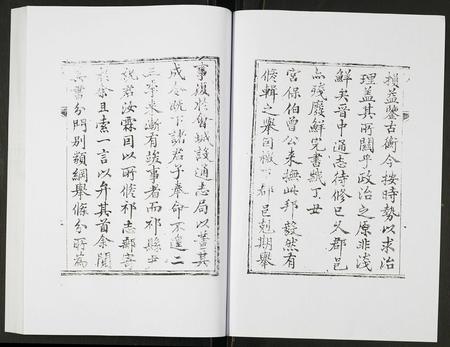 損益鑒古衡今按時勢以求治
理蓋其所關乎政治之原非淺
鮮矣晉中通志待修已久郡邑
亦殘廢鮮完書歲丁丑
宮保伯曾公来撫此邦毅然有
脩輯之舉因檄下郡邑剋期舉
事復於會城設通志局以董其
成令既下諸君子奉命不遑二
三年来漸有竣事者而祁縣
祝君汝霖因以所脩祁志郵寄
於余且索一言以弁其首余閱
其書分門别類綱舉條分所為